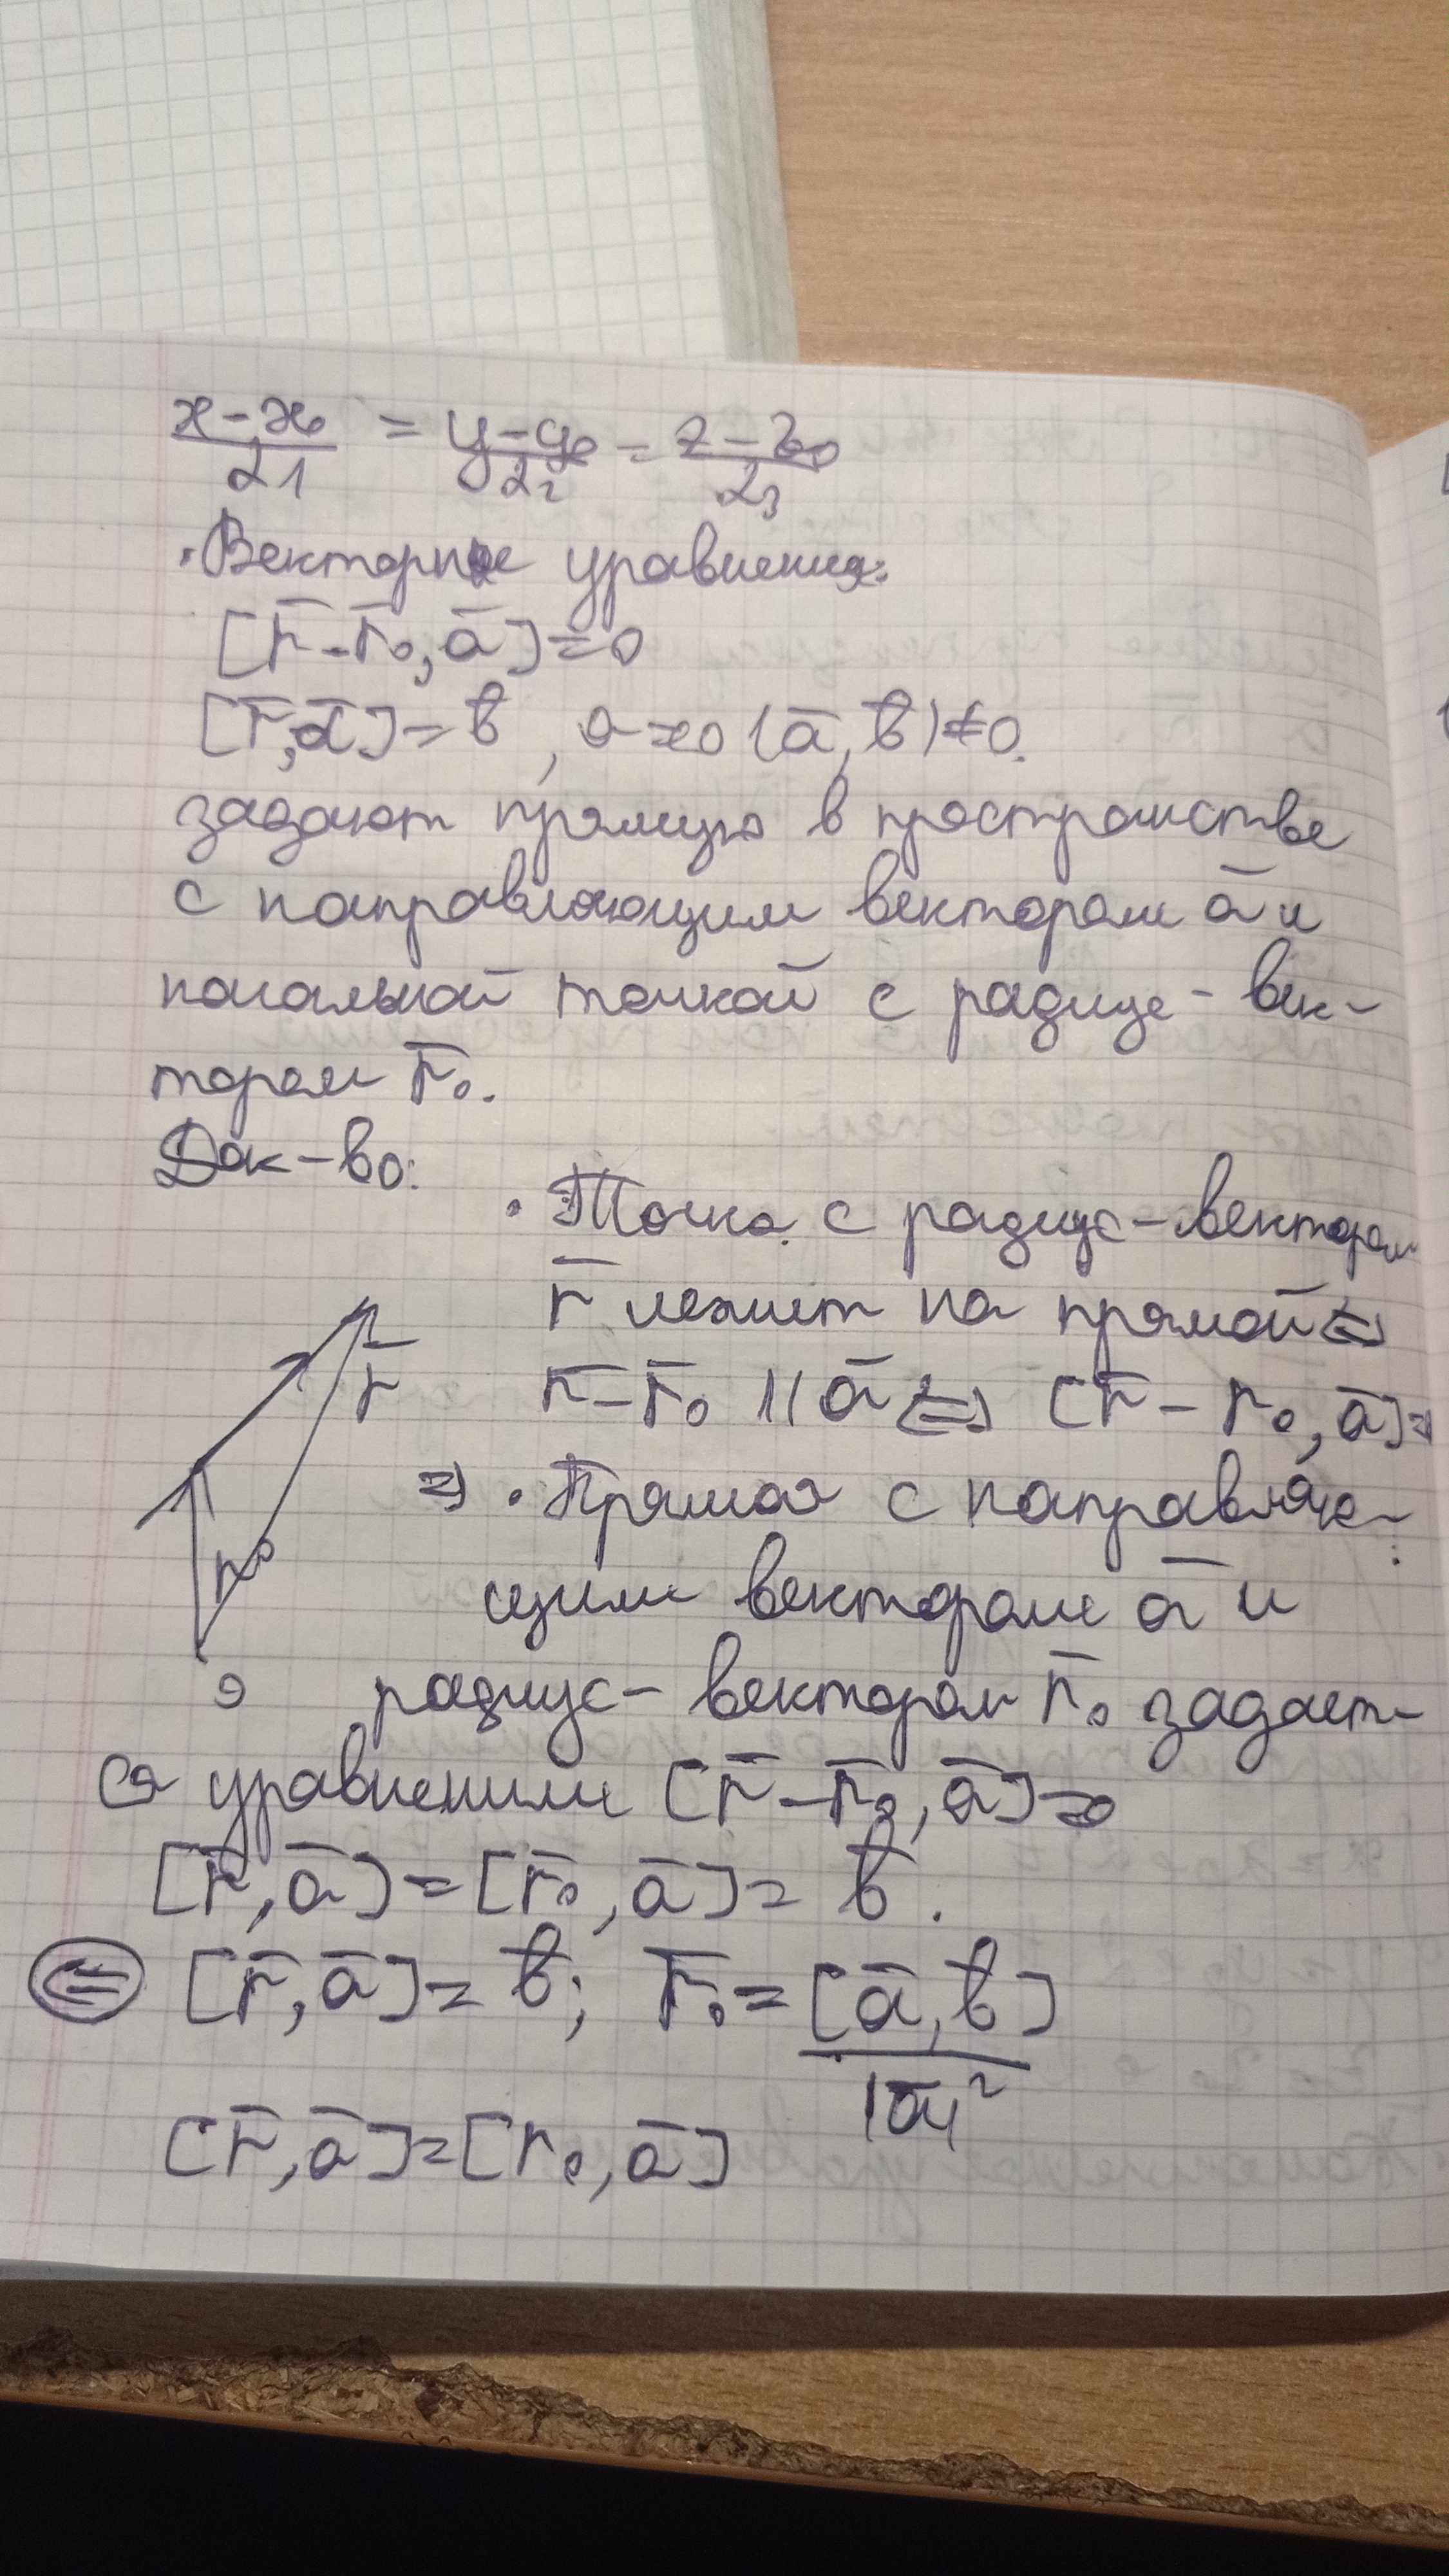 x-x₀/α1 = y-y₀/α₂ = z-z₀/α₃
• Векторные уравнения:
[r̅-r̅₀, a̅]=0
[r̅, a̅]=b̅, (a̅, b̅)≠0.
задают прямую в пространстве
с направляющим вектором a̅ и
начальной точкой с радиус-век-
тором r̅₀.
Док-во:
• Точка с радиус-вектором
r̅ лежит на прямой ⇔
r̅-r̅₀ || a̅ ⇔ [r̅-r₀, a̅]=
⇒ • Прямая с направляю-
щим вектором a̅ и
радиус-вектором r̅₀ задает-
ся уравнением [r̅-r̅₀, a̅]=0
[r̅, a̅]=[r̅₀, a̅]=b̅.
⇐ [r̅, a̅]=b̅; r̅₀=[a̅, b̅]/|a̅|²
[r̅, a̅]=[r̅₀, a̅]
r̅
r₀
0